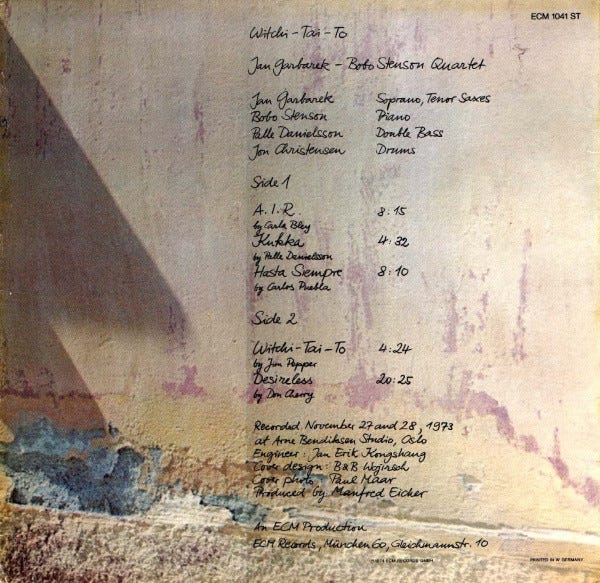 ECM 1041 ST
Witchi-Tai-To
Jan Garbarek - Bobo Stenson Quartet
Jan Garbarek Soprano, Tenor Saxes
Bobo Stenson Piano
Palle Danielsson Double Bass
Jon Christensen Drums
Side 1
A.I.R. 8:15
by Carla Bley
Kukka 4:32
by Palle Danielsson
Hasta Siempre 8:10
by Carlos Puebla
Side 2
Witchi-Tai-To 4:24
by Jim Pepper
Desireless 20:25
by Don Cherry
Recorded November 27 and 28, 1973
at Arne Bendiksen Studio, Oslo
Engineer: Jan Erik Kongshaug
Cover design: B & B Wojirsch
Cover photo: Paul Maar
Produced by Manfred Eicher
An ECM Production
ECM Records, München 60, Gleichmannstr. 10
℗ 1974 ECM RECORDS GMBH
PRINTED IN W. GERMANY